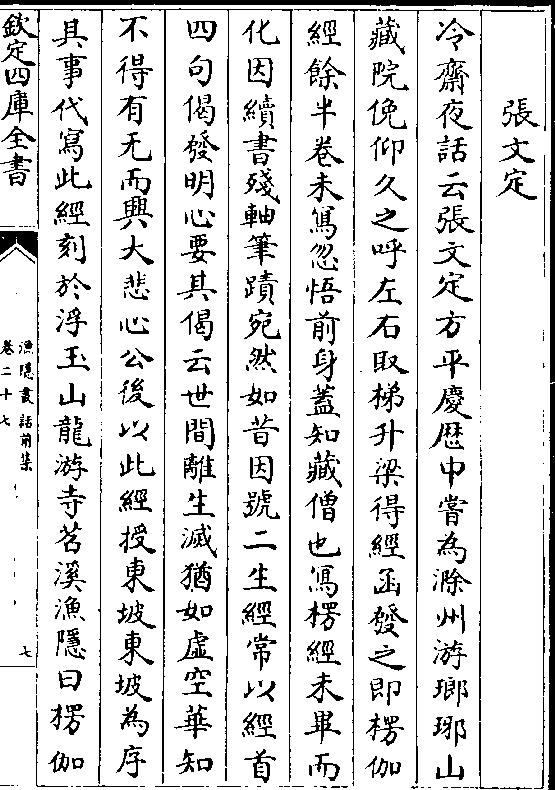 張文定
冷齋夜話云張文定方平慶厯中嘗為滁州游瑯琊山
藏院俛仰久之呼左右取梯升梁得經函發之即楞伽
經餘半卷未寫忽悟前身葢知藏僧也寫楞經未畢而
化因續書殘軸筆蹟宛然如昔因號二生經常以經首
四句偈發明心要其偈云世間離生滅猶如虛空華知
不得有无而興大悲心公後以此經授東坡東坡為序
具事代寫此經刻於浮玉山龍游寺苕溪漁隱曰楞伽
欽定四庫全書
漁隱叢話前集
卷二十七
七